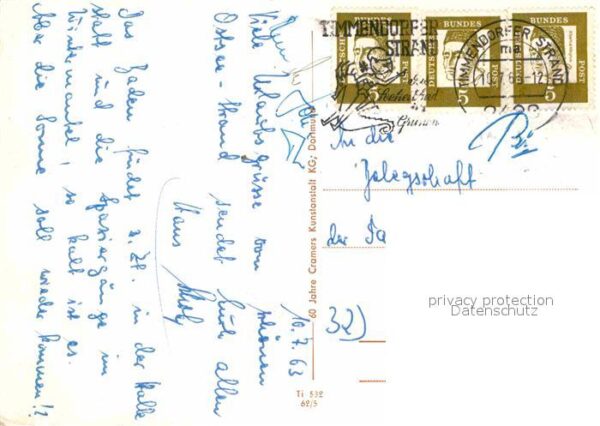 10.7.63
Viele Urlaubsgrüsse vom schönen
Ostsee-Strand sendet Euch allen
Hans
Das Baden findet z. Zt. in der Halle
statt und die Spaziergänge im
Wintermantel, so kalt ist es.
Aber die Sonne soll wieder kommen!?
60 Jahre Cramers Kunstanstalt KG; Dortmund
Ti 532
62/5
TIMMENDORFER
STRAND
BUNDES
POST
DEUTSCHE
5
BUNDES
POST
DEUTSCHE
5
BUNDES
POST
5
TIMMENDORFER STRAND
An die
Belegschaft
der Fa
32)
privacy protection
Datenschutz